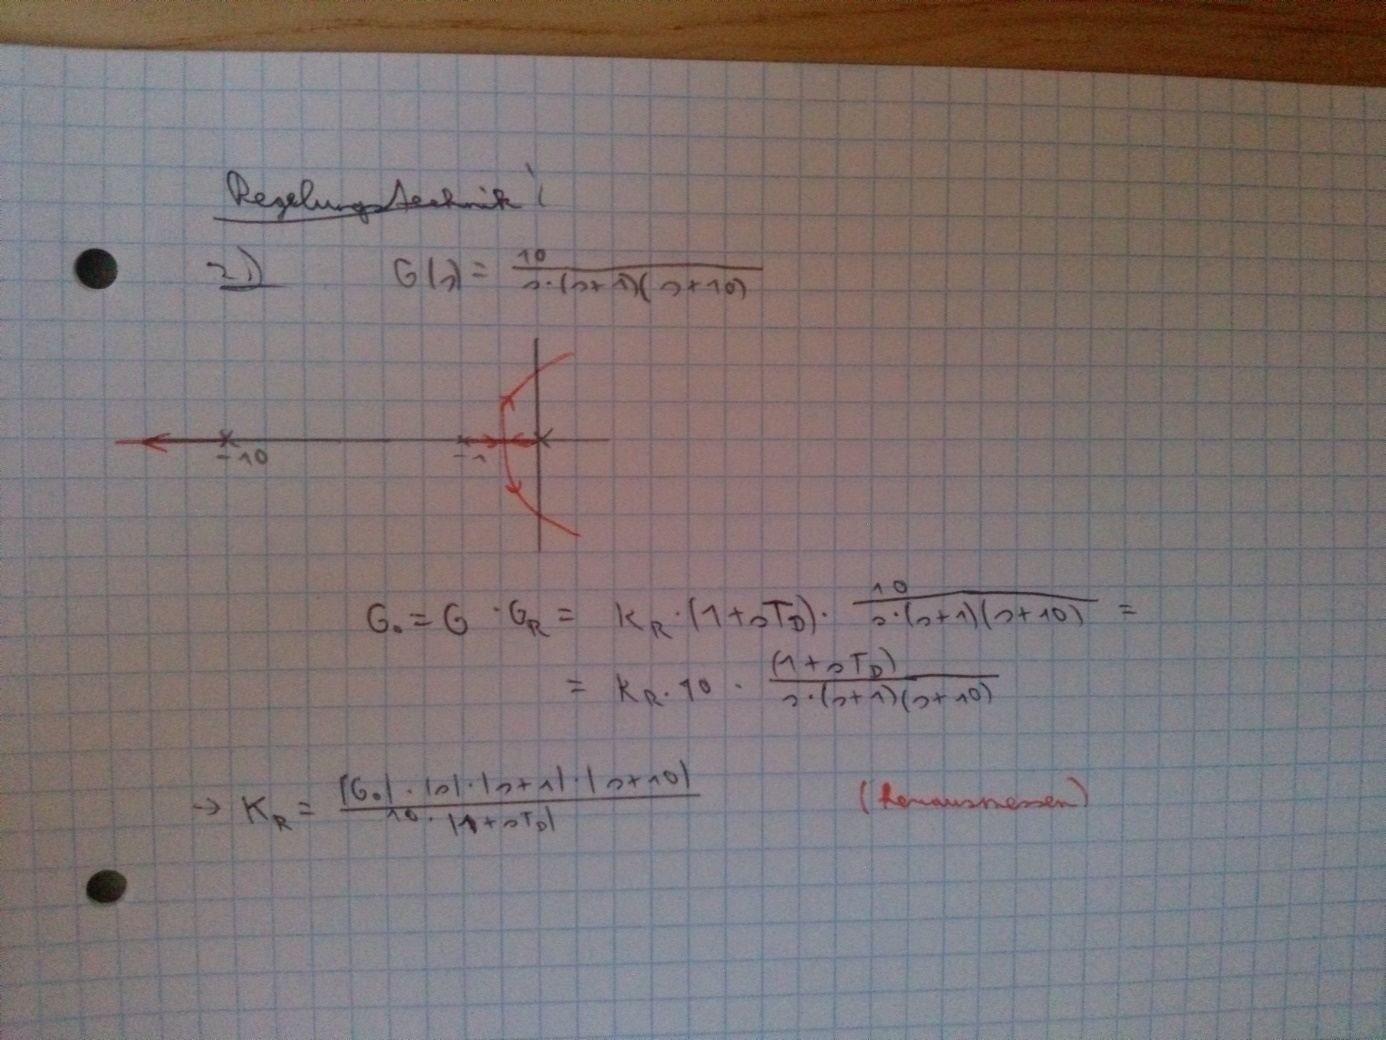 Regelungstechnik
2)  G(s) = 10 / s·(s+1)(s+10)
-10  -1
G₀ = G · G_R = K_R · (1+sT_D) · 10 / s·(s+1)(s+10) =
= K_R · 10 · (1+sT_D) / s·(s+1)(s+10)
→ K_R = |G₀| · |s| · |s+1| · |s+10| / 10 · |1+sT_D|  (herausmessen)